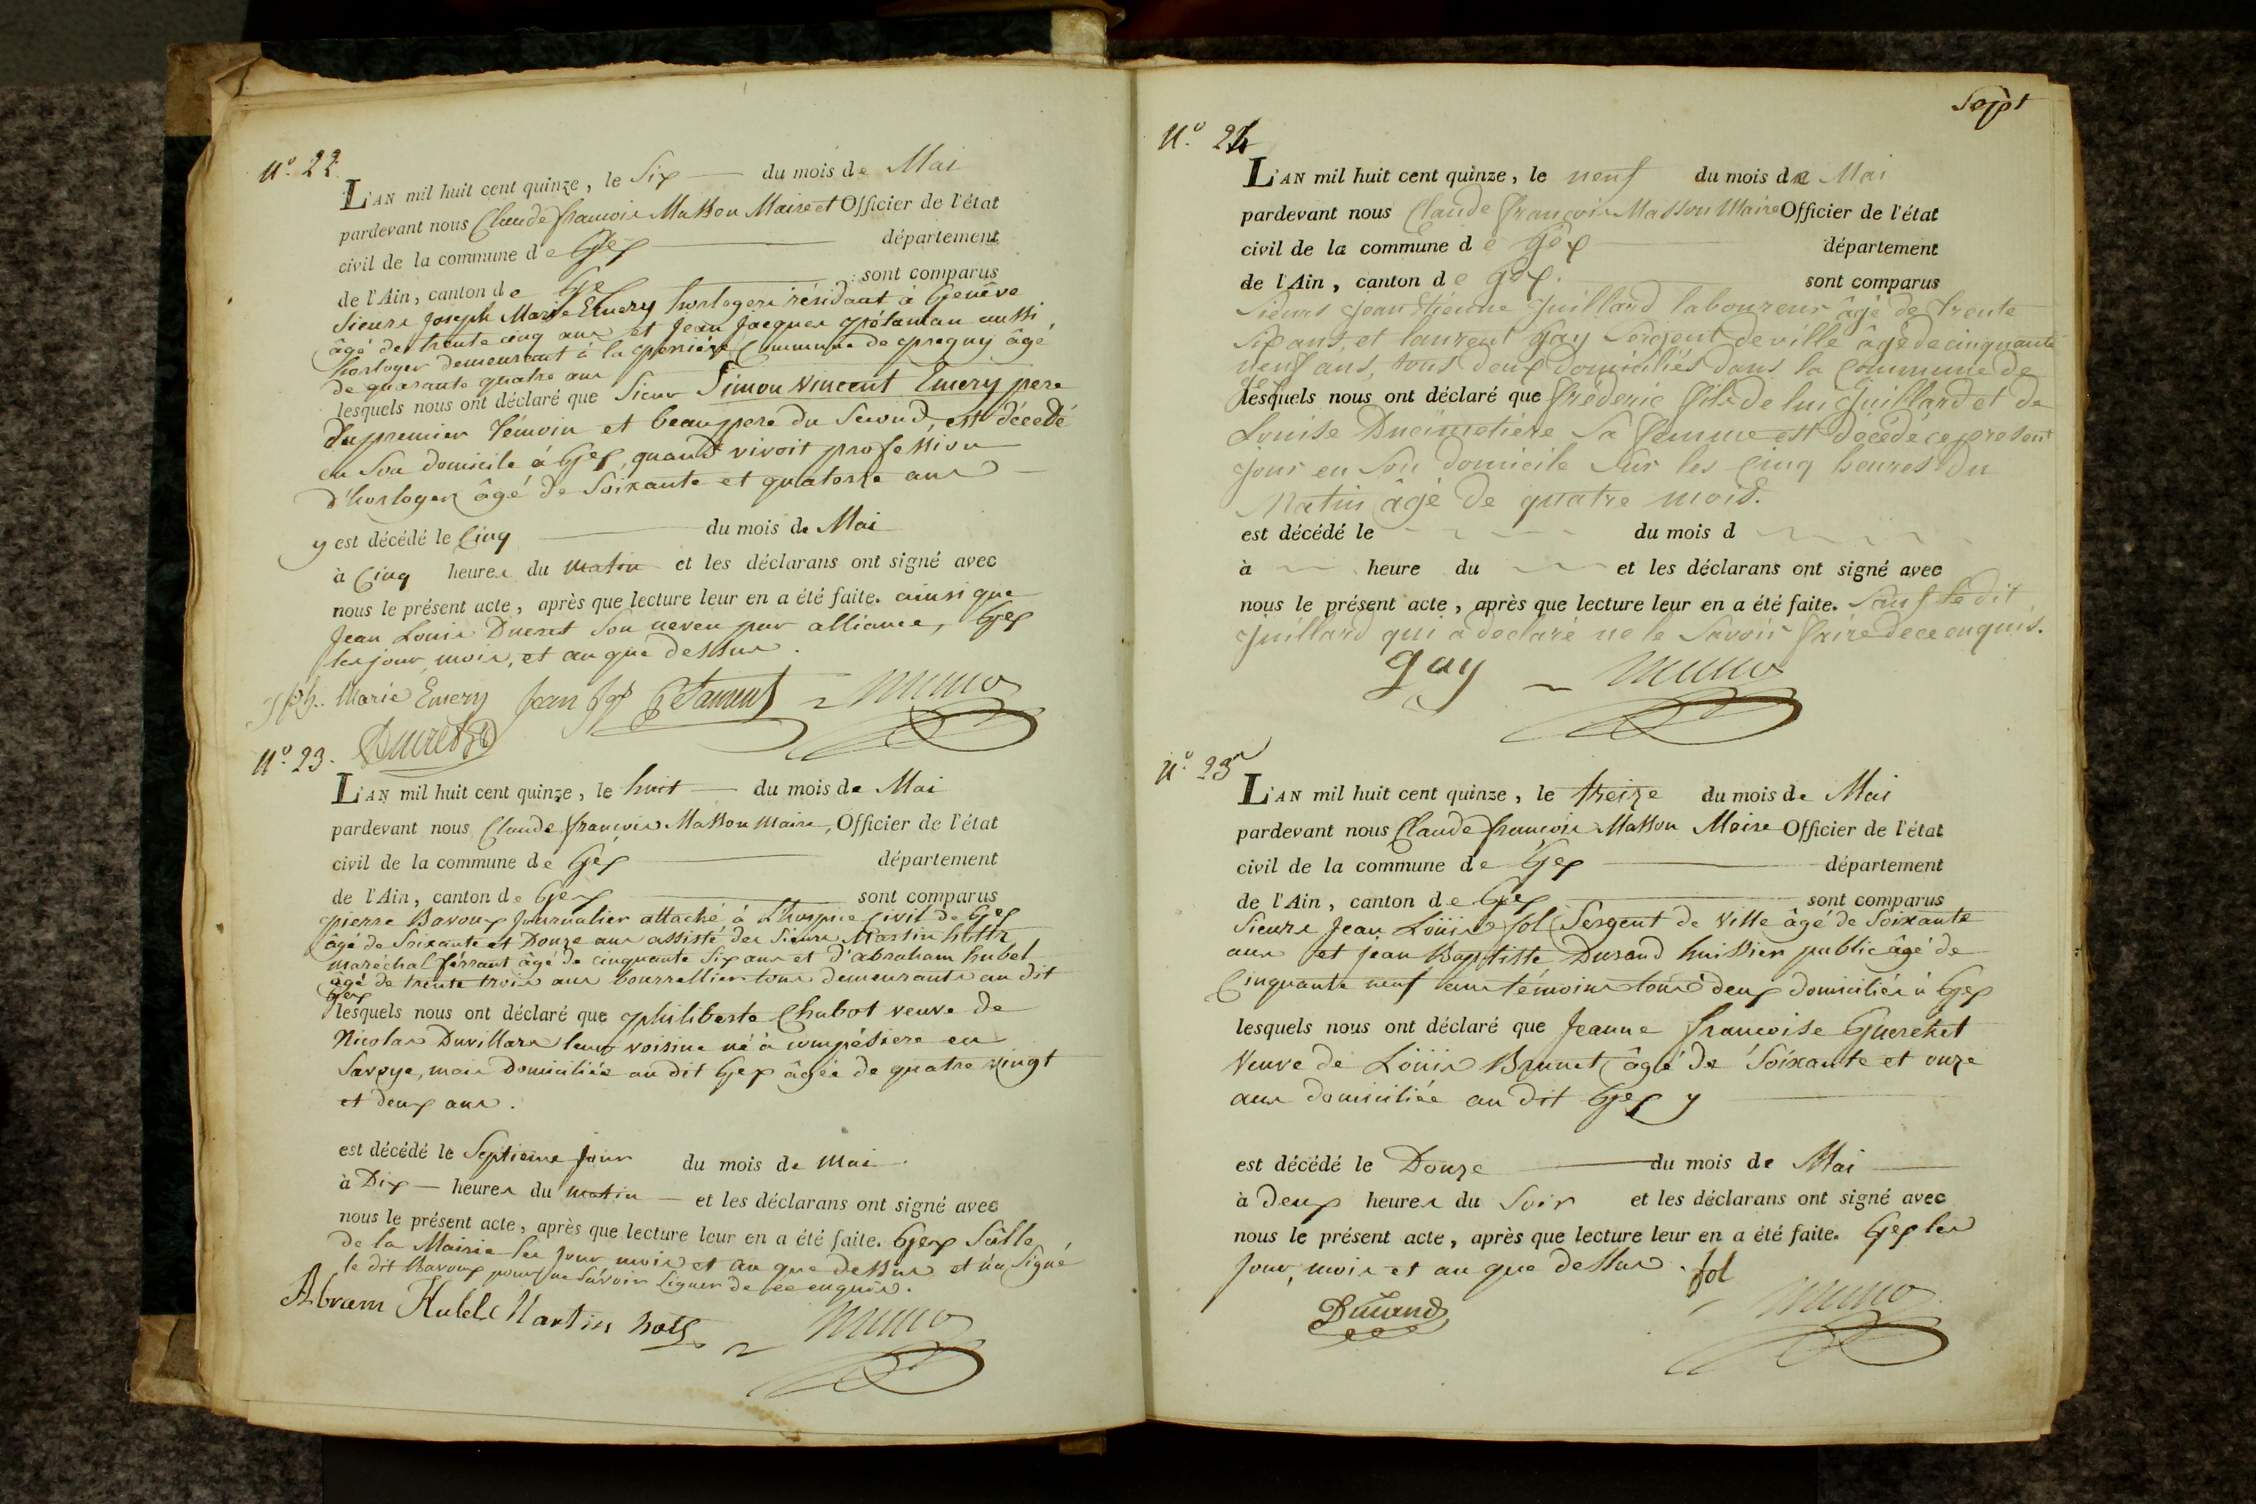 N.º 22.
L'AN mil huit cent quinze, le Six du mois de Mai
pardevant nous Claude françois Masson Maire et Officier de l'état
civil de la commune de Gex département
de l'Ain, canton de Gex sont comparus
Sieurs Joseph Marie Emery horloger résidant à Genêve
âgé de trente cinq ans et Jean Jacques aussi
horloger demeurant à la Commune de pregny âgé
de quarante quatre ans
lesquels nous ont déclaré que Sieur Simon Vincent Emery pere
du premier témoin et beaupere du Second, est décédé
en Son domicile à Gex, quand vivoit profession
d'horloger âgé de Soixante et quatorze ans
y est décédé le Cinq du mois de Mai
à Cinq heures du matin et les déclarans ont signé avec
nous le présent acte, après que lecture leur en a été faite. ainsi que
Jean Louis Ducret Son neveu par alliance, Gex
les jour, mois, et an que dessus.
Jph. Marie Emery Jean Jqs
Ducret
N.º 23.
L'AN mil huit cent quinze, le huit du mois de Mai
pardevant nous Claude françois Masson Maire, Officier de l'état
civil de la commune de Gex département
de l'Ain, canton de Gex sont comparus
pierre Bavoux Journalier attaché à L'hospice Civil de Gex
âgé de Soixante et Douze ans assisté des Sieurs Martin hottz
maréchal férrant âgé de cinquante Six ans et d'abraham hubel
âgé de trente trois ans bourrellier tous demeurants au dit
Gex
lesquels nous ont déclaré que philiberte Chabot veuve de
Nicolas Duvillars leur voisine né à compésiere en
Savoye, mais Domiciliée au dit Gex âgée de quatre vingt
et deux ans.
est décédé le Septieme Jour du mois de Mai
à Dix heures du matin et les déclarans ont signé avec
nous le présent acte, après que lecture leur en a été faite. Gex Sâlle
de la Mairie les Jour mois et an que dessus et n'a Signé
le dit Bavoux pour ne Savoir Signer de ce enquis.
Abram Hubel Martin hotz
Sept
N.º 24
L'AN mil huit cent quinze, le neuf du mois de Mai
pardevant nous Claude françois Masson Maire Officier de l'état
civil de la commune de Gex département
de l'Ain, canton de Gex. sont comparus
Sieurs Jean Etienne Juillard laboureur âgé de trente
Six ans, et laurent Gay Sergent de ville âgé de cinquante
neuf ans, tous deux domiciliés dans la Commune de
Gex
lesquels nous ont déclaré que fréderic fils de lui Juillard et de
Louise Ducimetière Sa femme est décédé ce present
jour en Son domicile Sur les Cinq heures du
Matin âgé de quatre mois.
est décédé le du mois d
à heure du et les déclarans ont signé avec
nous le présent acte, après que lecture leur en a été faite. Sauf le dit
Juillard qui a declaré ne le Savoir faire de ce enquis.
gay
N.º 25
L'AN mil huit cent quinze, le treize du mois de Mai
pardevant nous Claude françois Masson Maire Officier de l'état
civil de la commune de Gex département
de l'Ain, canton de Gex sont comparus
Sieurs Jean Loüis fol Sergent de Ville âgé de Soixante
ans et Jean Baptiste Durand huissier public âgé de
Cinquante neuf ans témoins tous deux domiciliés à Gex
lesquels nous ont déclaré que Jeanne françoise Guerchet
Veuve de Loüis Brunet âgé de Soixante et onze
ans domiciliée au dit Gex y
est décédé le Douze du mois de Mai
à deux heures du Soir et les déclarans ont signé avec
nous le présent acte, après que lecture leur en a été faite. Gex les
Jour, mois et an que dessus. fol
Durand